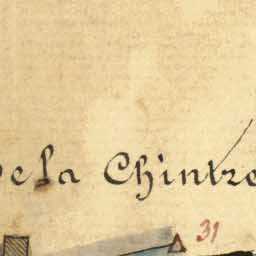 De la Chintre
31